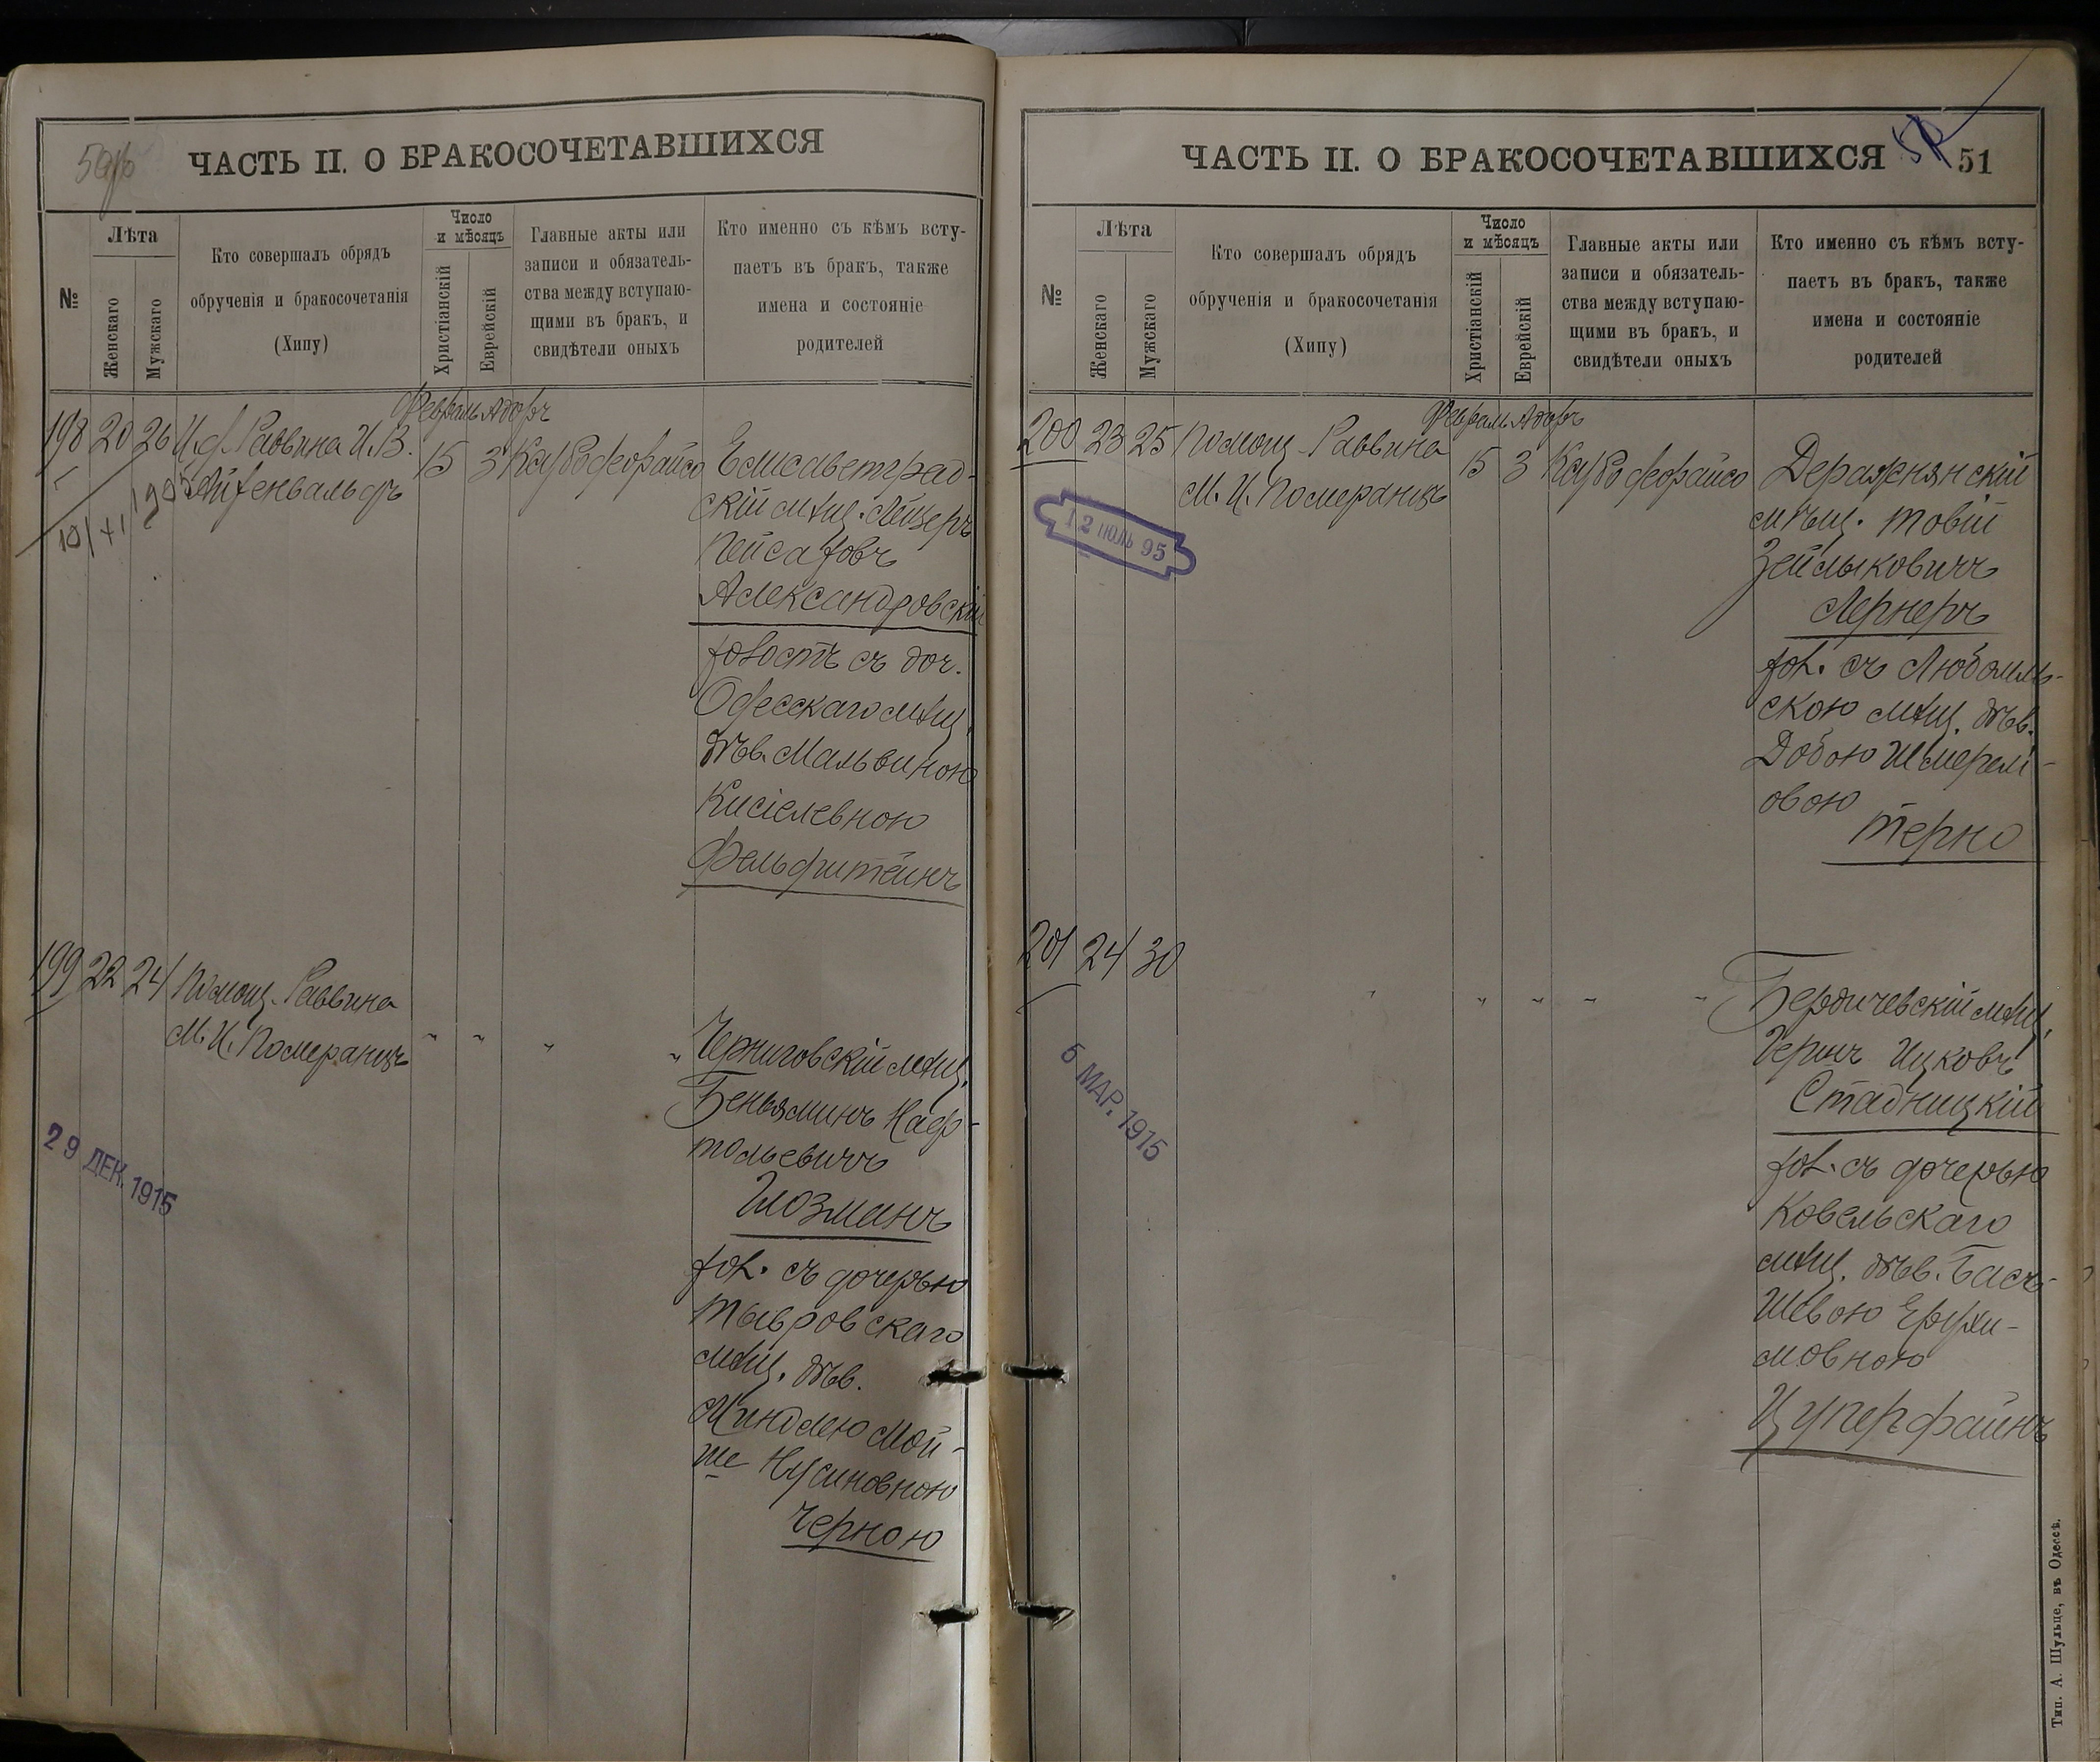 ЧАСТЬ II. О БРАКОСОЧЕТАВШИХСЯ
№
Лѣта
Женскаго
Мужскаго
Кто совершалъ обрядъ
обрученія и бракосочетанія
(Хипу)
Число
и мѣсяцъ
Христіанскій
Еврейскій
Главные акты или
записи и обязатель-
ства между вступаю-
щими въ бракъ, и
свидѣтели оныхъ
Кто именно съ кѣмъ всту-
паетъ въ бракъ, также
имена и состояніе
родителей
Февраль Адоръ
198 20 26 И. д. Раввина И. В.
Айхенвальдъ
15 3
Елисаветград-
скій мѣщ. Лейзеръ
Пейсаховъ
Александровскій
холостъ съ доч.
Одесскаго мѣщ.
дѣв. Мальвиною
Кисіелевною
Фельдштейнъ
199 22 24 Помощ. Раввина
М. И. Померанцъ
" " " "
Черниговскій мѣщ.
Беньяминъ Наф-
тольевичъ
Глозманъ
хол. съ дочерью
Тывровскаго
мѣщ. дѣв.
Миндлею Мой-
ше Нусиновною
Черною
29 ДЕК. 1915
ЧАСТЬ II. О БРАКОСОЧЕТАВШИХСЯ
51
№
Лѣта
Женскаго
Мужскаго
Кто совершалъ обрядъ
обрученія и бракосочетанія
(Хипу)
Число
и мѣсяцъ
Христіанскій
Еврейскій
Главные акты или
записи и обязатель-
ства между вступаю-
щими въ бракъ, и
свидѣтели оныхъ
Кто именно съ кѣмъ всту-
паетъ въ бракъ, также
имена и состояніе
родителей
Февраль Адоръ
200 23 25 Помощ. Раввина
М. И. Померанцъ
15 3
Деражнянскій
мѣщ. Товій
Зейлыковичъ
Лернеръ
хол. съ Любомль-
скою мѣщ. дѣв.
Добою Шмерелі-
овою
Терно
12 июль 95
201 24 30
" " " " "
Бердичевскій мѣщ.
Гершъ Ицковъ
Стадницкій
хол. съ дочерью
Ковельскаго
мѣщ. дѣв. Бась-
Шевою Ерухи-
мовною
Цуперфайнъ
5 МАР. 1915
Тип. А. Шульце, въ Одессѣ.